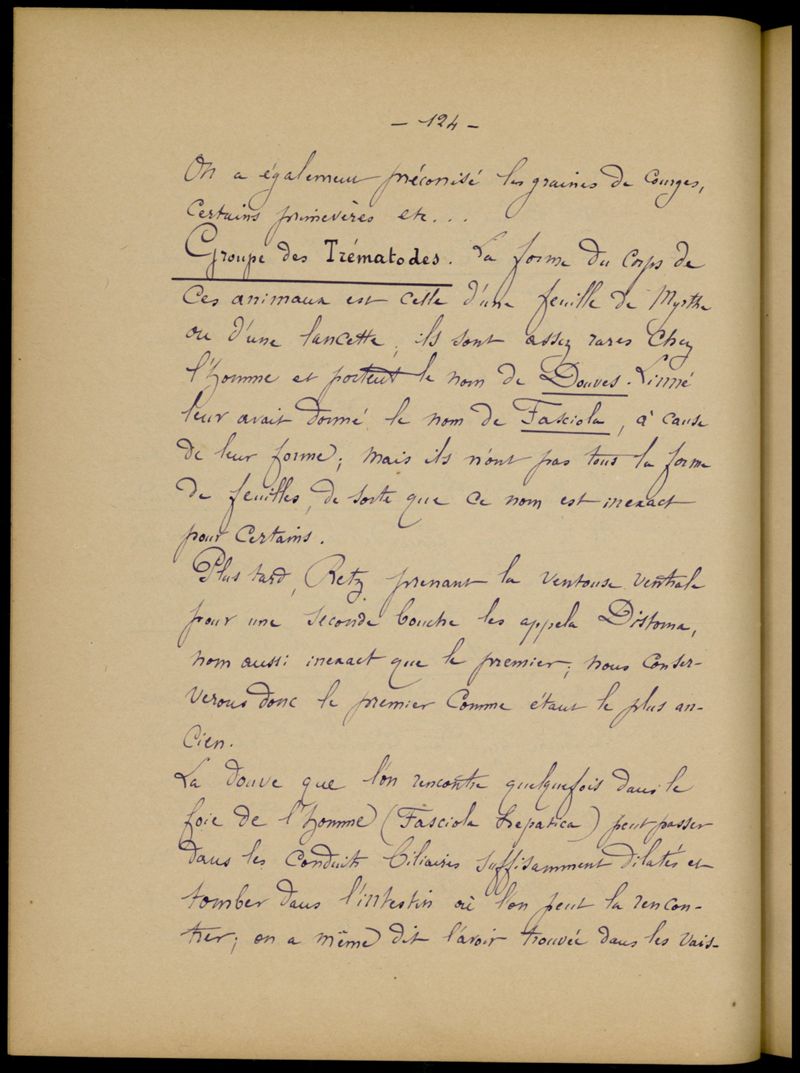 — 124 —
On a également préconisé les graines de Courges,
certains primevères etc...
Groupe des Trématodes. La forme du corps de
ces animaux est celle d'une feuille de Myrthe
ou d'une lancette; ils sont assez rares chez
l'homme et portent le nom de Douves. Linné
leur avait donné le nom de Fasciola, à cause
de leur forme; mais ils n'ont pas tous la forme
de feuilles, de sorte que ce nom est inexact
pour certains.
Plus tard, Retz prenant la ventouse ventrale
pour une seconde bouche les appela Distoma,
nom aussi inexact que le premier; nous conser-
verons donc le premier comme étant le plus an-
cien.
La douve que l'on rencontre quelquefois dans le
foie de l'homme (Fasciola hepatica) peut passer
dans les conduits biliaires suffisamment dilatés et
tomber dans l'intestin où l'on peut la rencon-
trer; on a même dit l'avoir trouvée dans les vais-